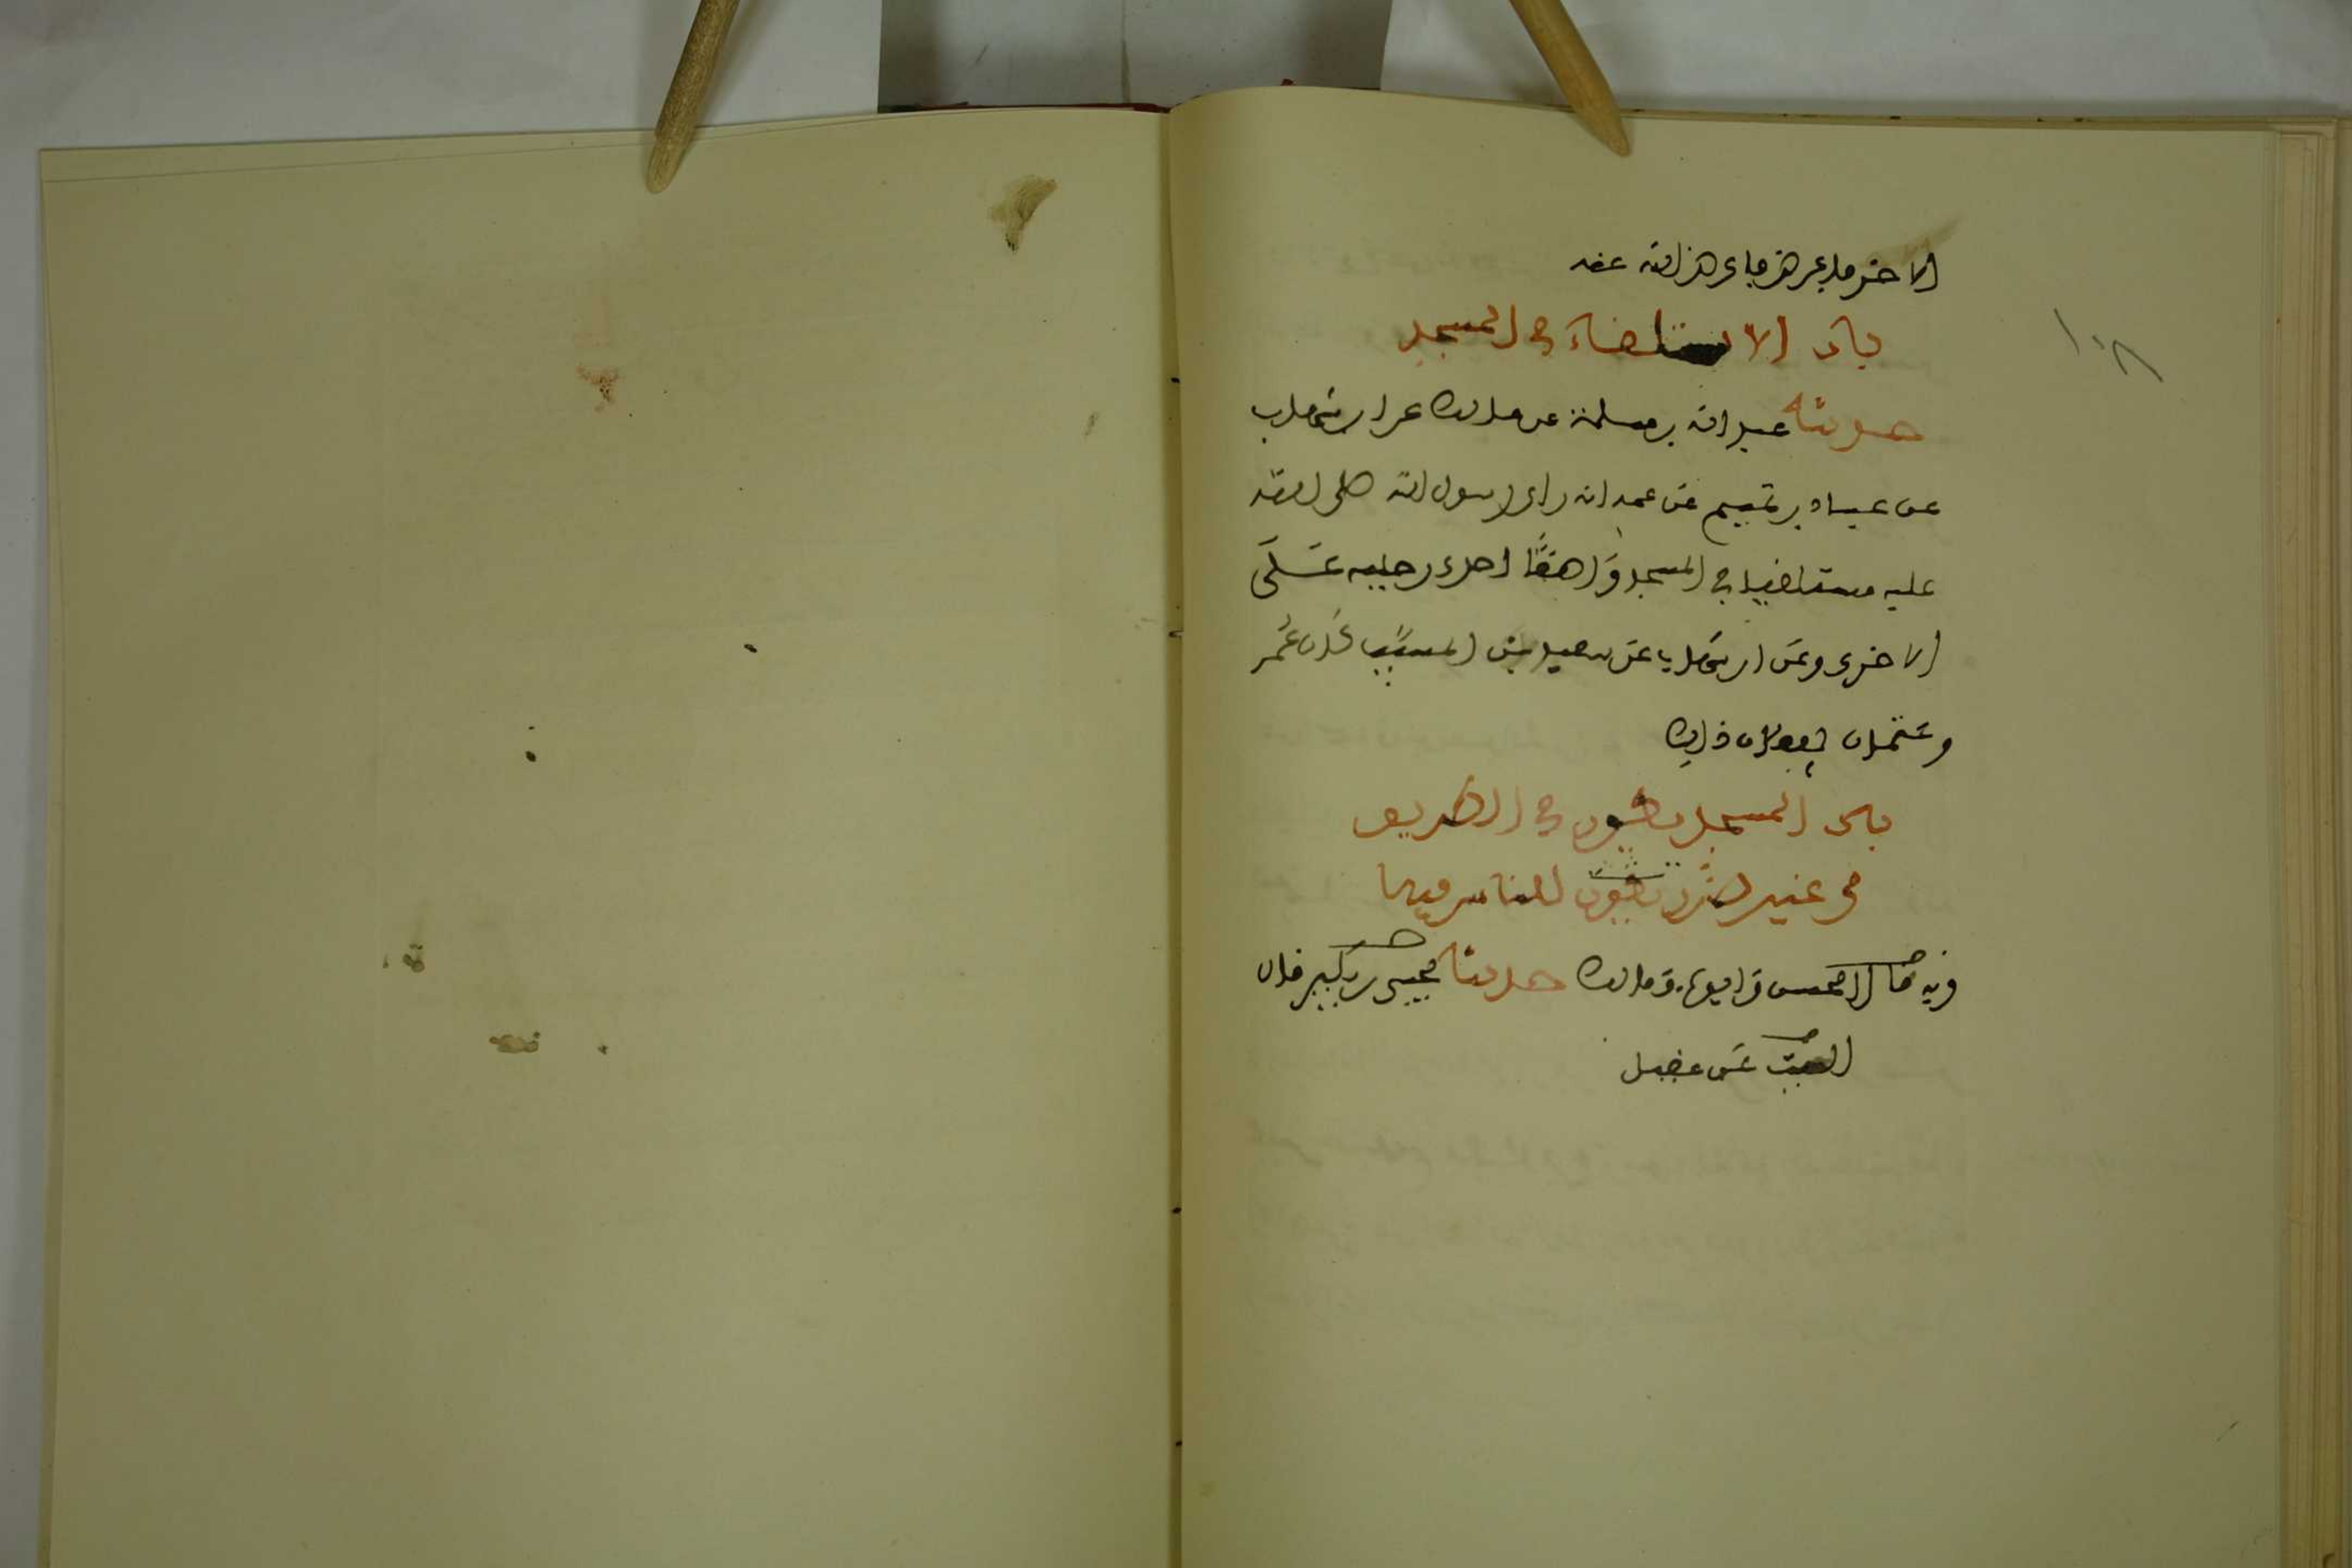 الاخر فاعرض فاعرض الله عنه
باب الاستلقاء في المسجد
حدثنا عبد الله بن مسلمة عن مالك عن ابن شهاب
عن عباد بن تميم عن عمه انه راى رسول الله صلى الله
عليه مستلقيا في المسجد وَاضعًا احدى رجليه عَلَى
الاخرى وعَن ابن شهاب عَن سعيد بن المسيّب كَان عُمر
وعثمان يفعلان ذلك
باب المسجد يكون في الطريق
من غير ضرر يكون للناس فيه
وبه قال الحسن وايوب ومالك حدثنا يحيى بن بكير قال
الليث عَن عقيل
١٠٨